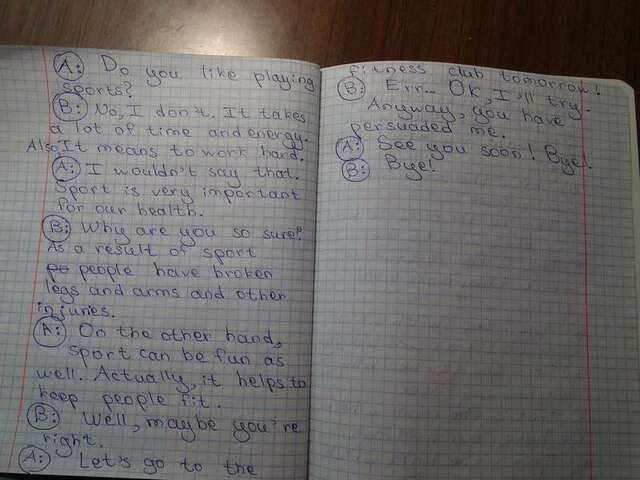 A: Do you like playing
sports?
B: No, I don't. It takes
a lot of time and energy.
Also It means to work hard.
A: I wouldn't say that.
Sport is very important
for our health.
B: Why are you so sure?
As a result of sport
people have broken
legs and arms and other
injuries.
A: On the other hand,
sport can be fun as
well. Actually, it helps to
keep people fit.
B: Well, maybe you're
right.
A: Let's go to the
fitness club tomorrow!
B: Err... OK, I'll try.
Anyway, you have
persuaded me.
A: See you soon! Bye!
B: Bye!